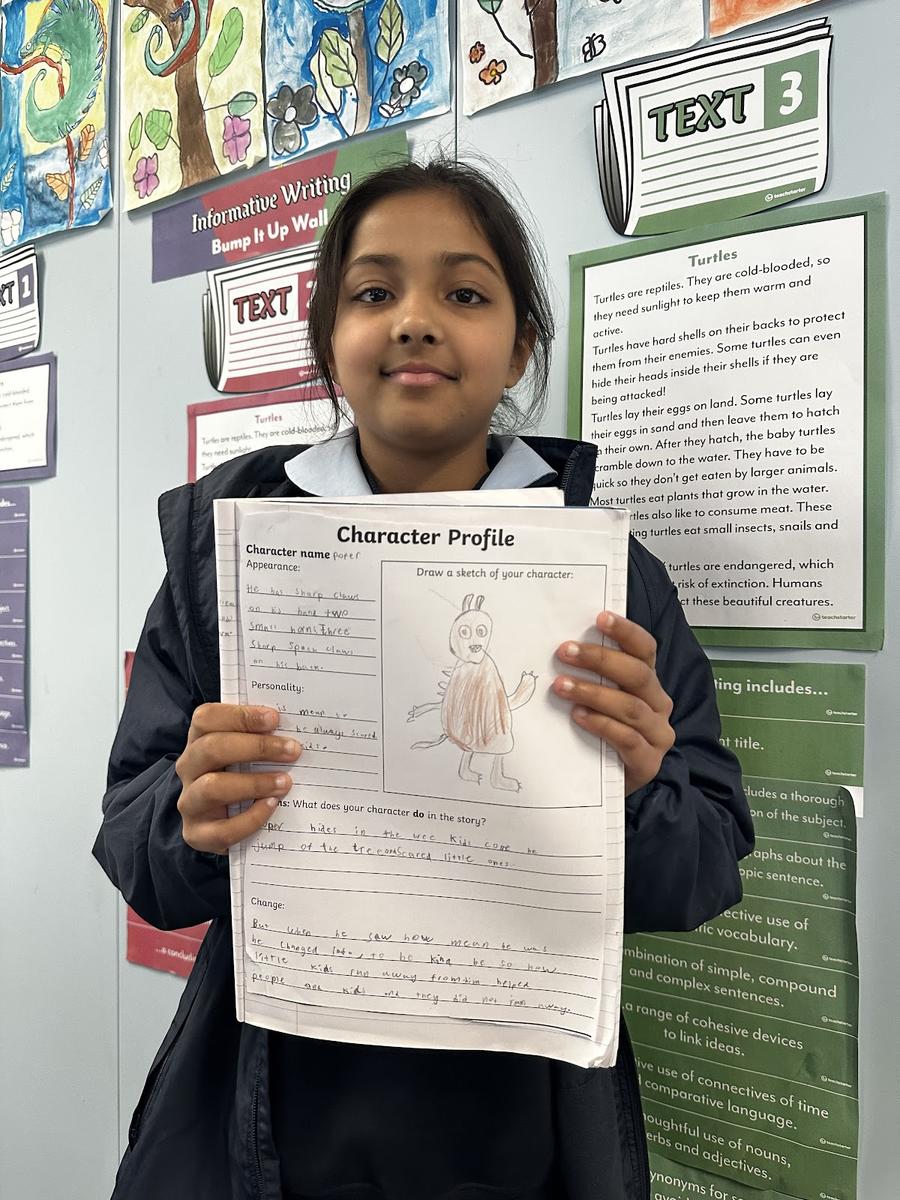 TEXT 3
teachstarter
Informative Writing
Bump It Up Wall
TEXT
1
Turtles
Turtles are reptiles. They are cold-blooded, so
they need sunlight to keep them warm and
active.
Turtles have hard shells on their backs to protect
them from their enemies. Some turtles can even
hide their heads inside their shells if they are
being attacked!
Turtles lay their eggs on land. Some turtles lay
their eggs in sand and then leave them to hatch
on their own. After they hatch, the baby turtles
scramble down to the water. They have to be
quick so they don't get eaten by larger animals.
Most turtles eat plants that grow in the water.
turtles also like to consume meat. These
turtles eat small insects, snails and
turtles are endangered, which
risk of extinction. Humans
these beautiful creatures.
teachstarter
Turtles
Turtles are reptiles. They are cold-blooded, so
they need sunlight
Character Profile
Character name
Appearance:
He has sharp claws
on his hand two
small horns three
Sharp claws
on his back.
Draw a sketch of your character:
Personality:
is mean
he always scared
What does your character do in the story?
hides in the kids come he
Jump of the tree and Scared little ones.
Change:
But when he saw how mean he was
he changed to be kind so how
little kids run away from him helped
people and kids and they did not run away.
includes...
title.
a thorough
of the subject.
about the
sentence.
use of
vocabulary.
of simple, compound
and complex sentences.
a range of cohesive devices
to link ideas.
use of connectives of time
comparative language.
use of nouns,
and adjectives.
for